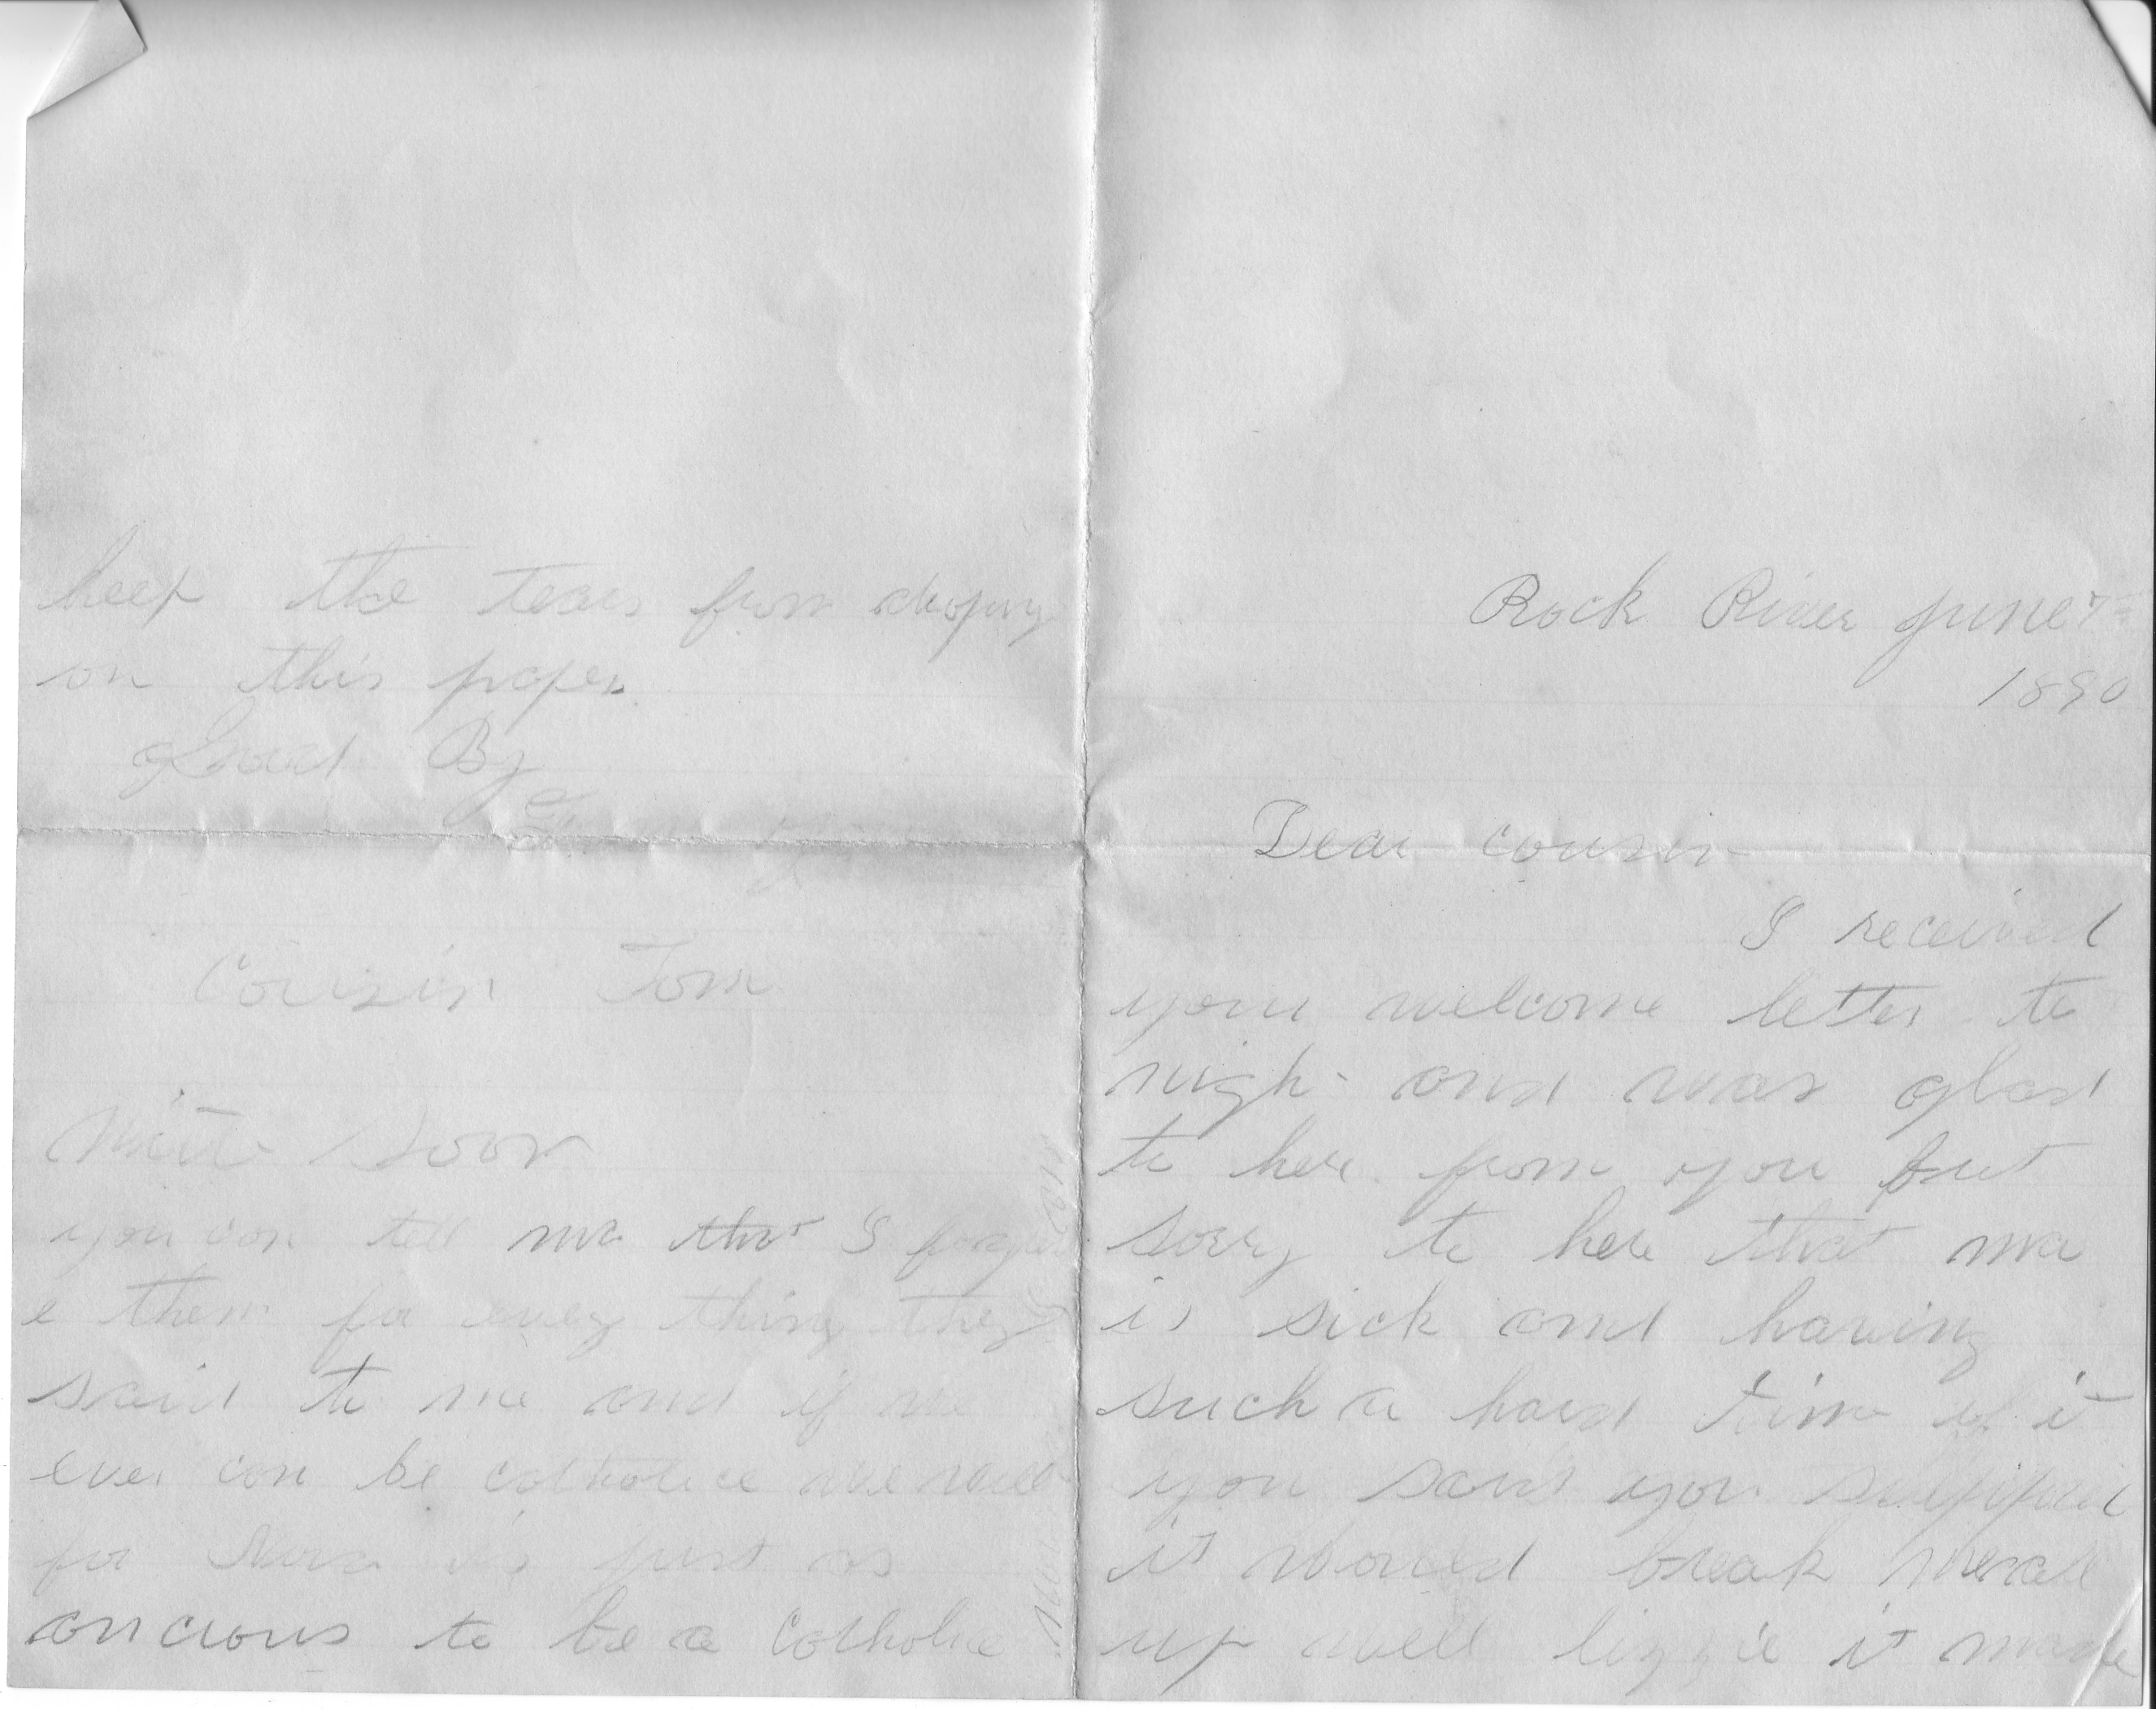 Rock River June 7th
1890
Dear cousin
I received
your welcome letter to
nigh- and was glad
to here from you but
sorry to here that ma
is sick and having
such a hard time of it
you said you suppised
it would break me all
up well lizzie it made
keep the tears from droping
on this paper
Good By
Cousin Tom
Write soon
you can tell ma that I forgiv
e them for every thing they
said to me and if we
ever can be catholice we will
for Nora is just as
oncious to be a Catholic